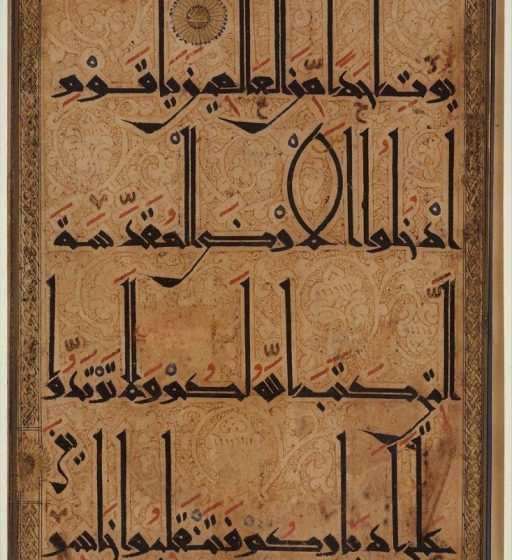 يؤت احدا من العالمين يا قوم
ادخلوا الارض المقدسة
التي كتب الله لكم ولا ترتدوا
على ادباركم فتنقلبوا خاسرين